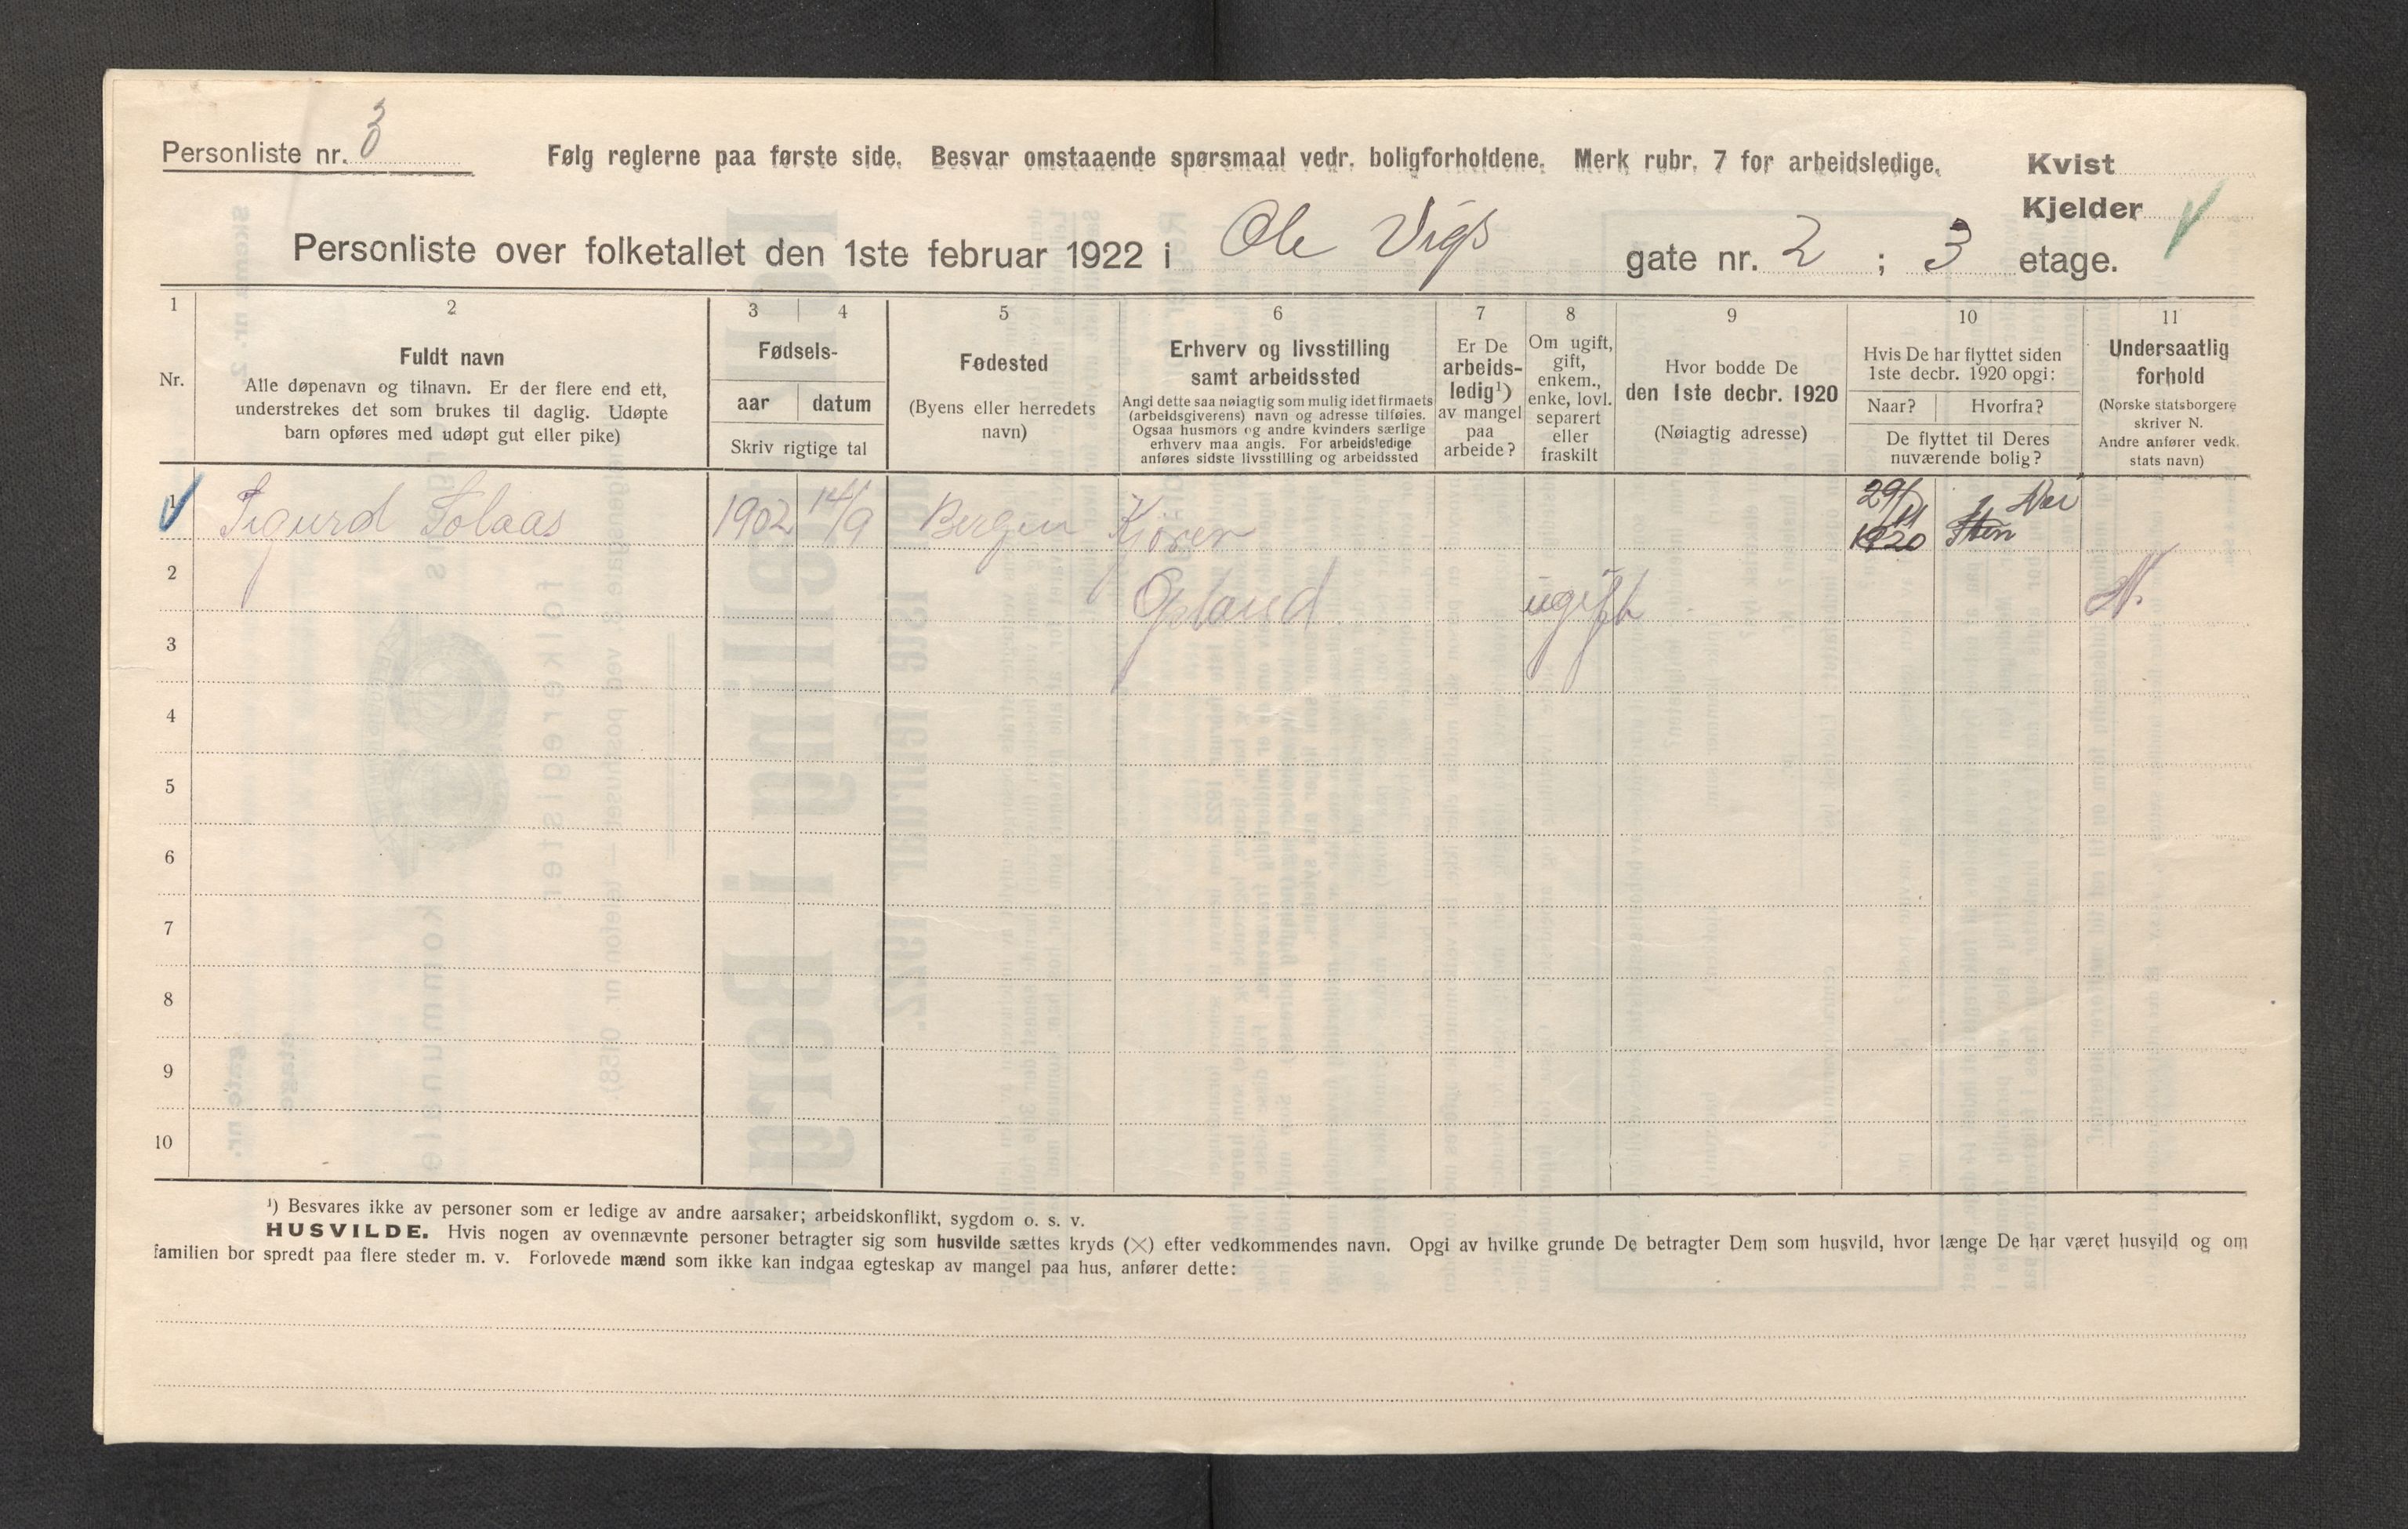 Personliste nr. 3
Følg reglerne paa første side. Besvar omstaaende spørsmaal vedr. boligforholdene. Merk rubr. 7 for arbeidsledige.
Kvist
Kjelder
Personliste over folketallet den 1ste februar 1922 i Ole Vigs gate nr. 2 ; 3 etage.
1
Nr.
2
Fuldt navn
Alle døpenavn og tilnavn. Er der flere end ett,
understrekes det som brukes til daglig. Udøpte
barn opføres med udøpt gut eller pike)
3 4
Fødsels-
aar datum
Skriv rigtige tal
5
Fødested
(Byens eller herredets
navn)
6
Erhverv og livsstilling
samt arbeidssted
Angi dette saa nøiagtig som mulig idet firmaets
(arbeidsgiverens) navn og adresse tilføies.
Ogsaa husmors og andre kvinders særlige
erhverv maa angis. For arbeidsledige
anføres sidste livsstilling og arbeidssted
7
Er De
arbeids-
ledig¹)
av mangel
paa
arbeide?
8
Om ugift,
gift,
enkem.,
enke, lovl.
separert
eller
fraskilt
9
Hvor bodde De
den 1ste decbr. 1920
(Nøiagtig adresse)
10
Hvis De har flyttet siden
1ste decbr. 1920 opgi:
Naar? Hvorfra?
De flyttet til Deres
nuværende bolig?
11
Undersaatlig
forhold
(Norske statsborgere
skriver N.
Andre anfører vedk.
stats navn)
1 Sigurd Solaas 1902 14/9 Bergen Kjører 29/11 1920
2 ugift N.
3
4
5
6
7
8
9
10
¹) Besvares ikke av personer som er ledige av andre aarsaker; arbeidskonflikt, sygdom o. s. v.
HUSVILDE. Hvis nogen av ovennævnte personer betragter sig som husvilde sættes kryds (×) efter vedkommendes navn. Opgi av hvilke grunde De betragter Dem som husvild, hvor længe De har været husvild og om
familien bor spredt paa flere steder m. v. Forlovede mænd som ikke kan indgaa egteskap av mangel paa hus, anfører dette: